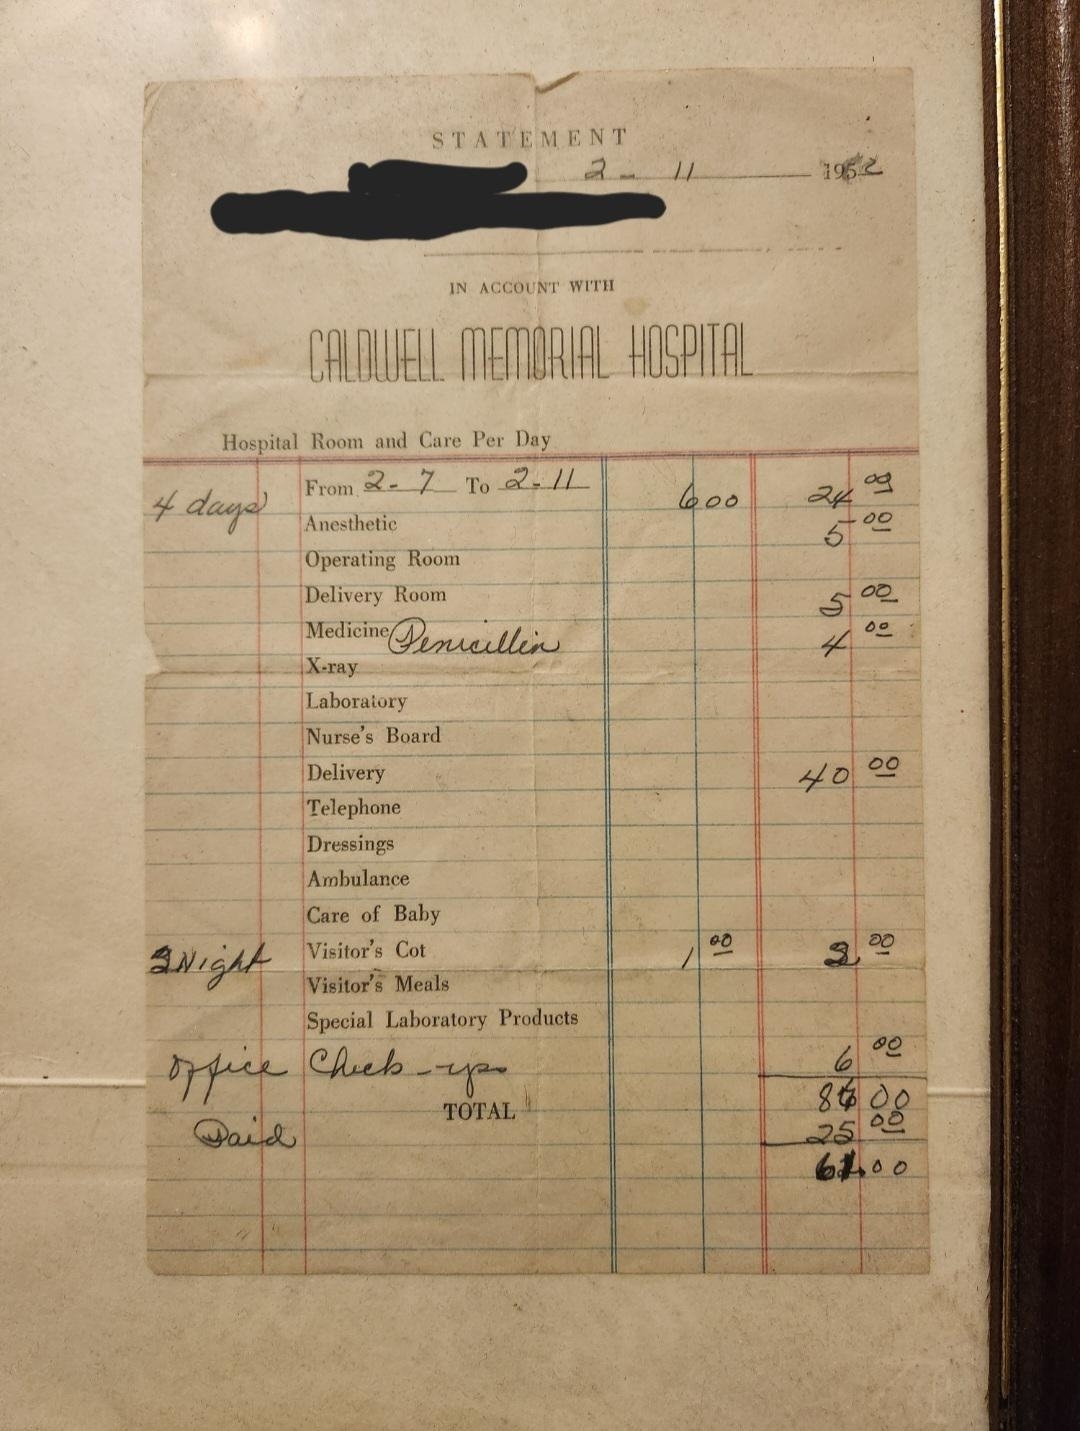 STATEMENT
2 - 11
IN ACCOUNT WITH
CALDWELL MEMORIAL HOSPITAL
Hospital Room and Care Per Day
4 days From 2-7 To 2-11 6 00 24 00
Anesthetic 5 00
Operating Room
Delivery Room 5 00
Medicine Penicillin 4 00
X-ray
Laboratory
Nurse's Board
Delivery 40 00
Telephone
Dressings
Ambulance
Care of Baby
2 Night Visitor's Cot 1 00 2 00
Visitor's Meals
Special Laboratory Products
Office Check-ups 6 00
TOTAL 86 00
Paid 25 00
61.00